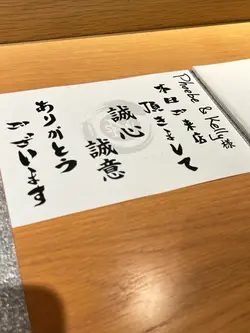 Phoebe & Kelly様
本日ご来店
頂きまして
誠心
誠意
ありがとう
ございます